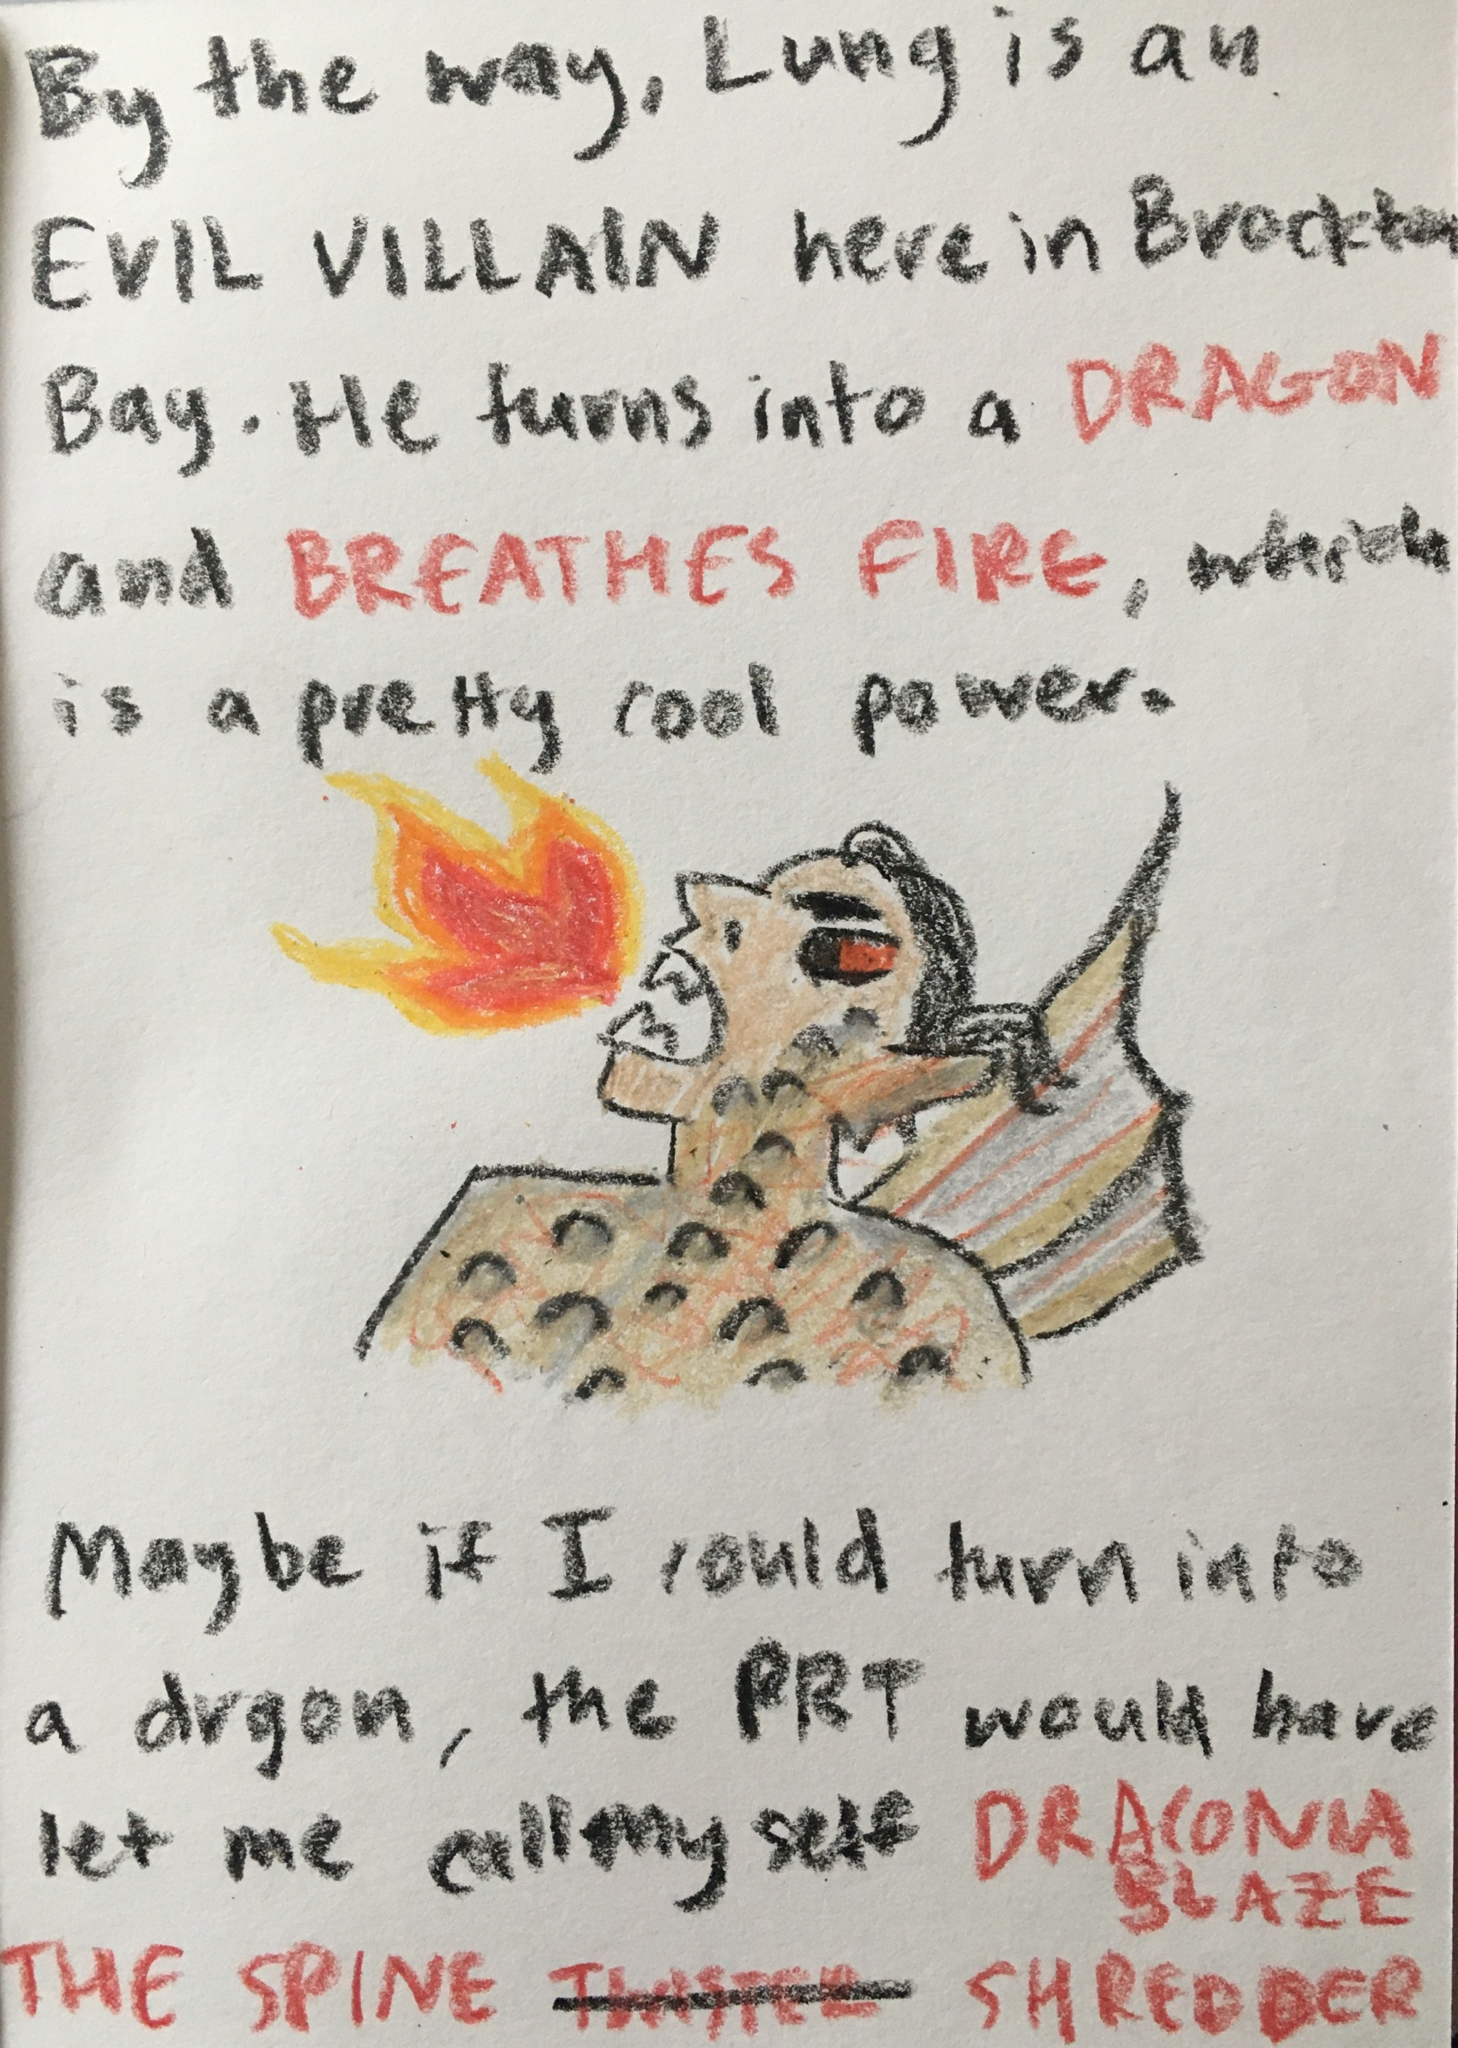 By the way, Lung is an
EVIL VILLAIN here in Brockton
Bay. He turns into a DRAGON
and BREATHES FIRE, which
is a pretty cool power.
Maybe if I could turn into
a drgon, the PRT would have
let me call my self DRACONIA
BLAZE
THE SPINE TWISTER SHREDDER